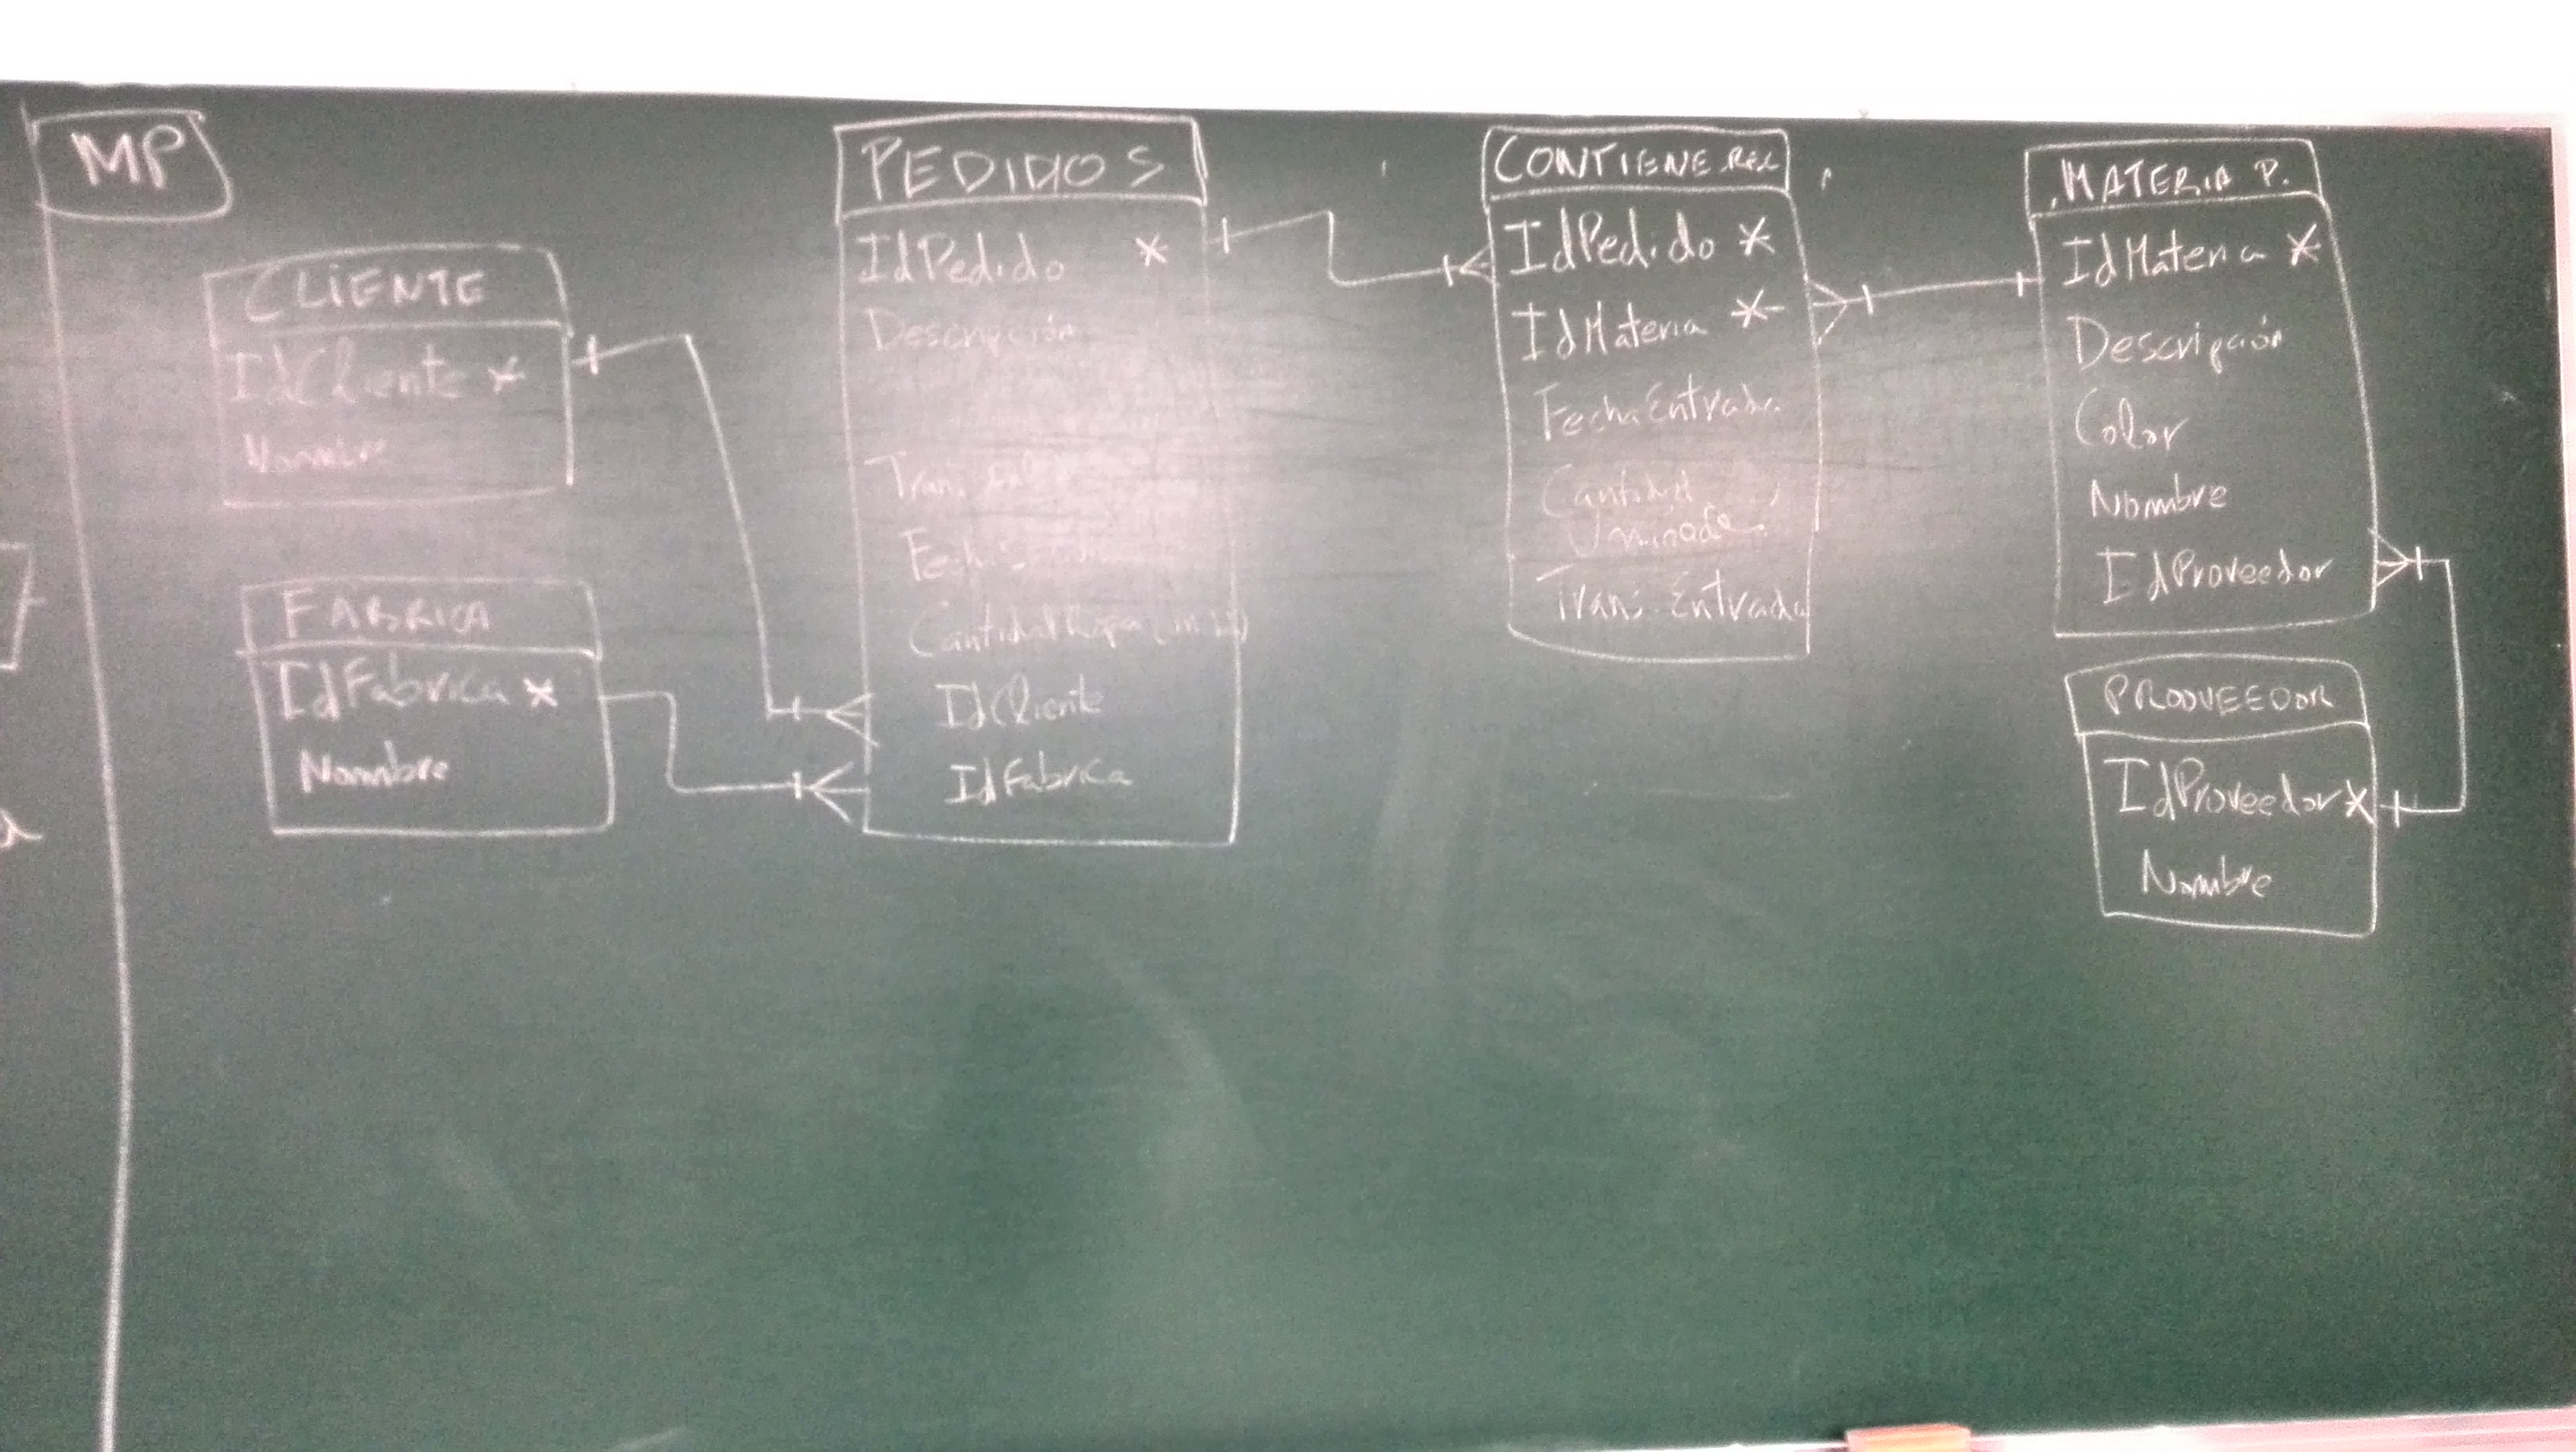 MP
CLIENTE
IdCliente *
Nombre
FABRICA
IdFabrica *
Nombre
PEDIDOS
IdPedido *
Descripción
IdCliente
IdFabrica
CONTIENE_REL
IdPedido *
IdMateria *
FechaEntrada
Cantidad
Trans. Entrada
MATERIA P.
IdMateria *
Descripción
Color
Nombre
IdProveedor
PROOVEEDOR
IdProveedor *
Nombre
a